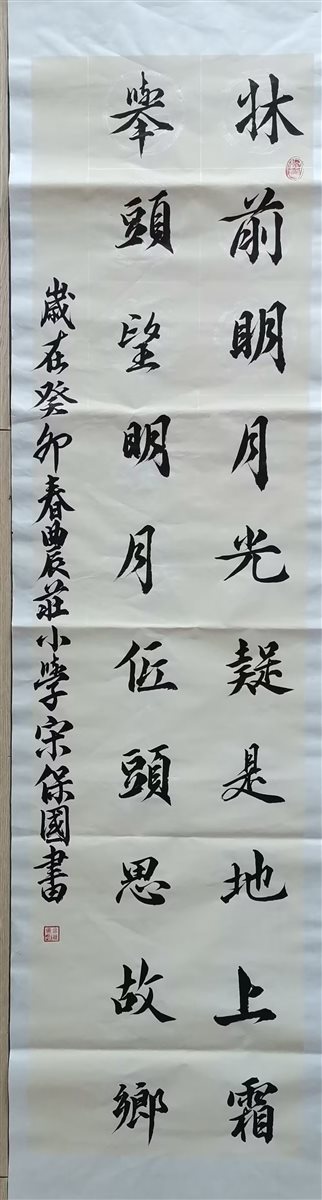 牀前明月光疑是地上霜
舉頭望明月低頭思故鄉
歲在癸卯春農莊小學宋保國書